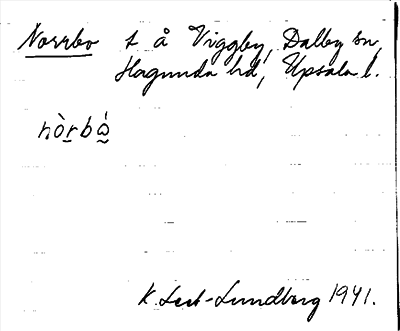 Norrbo t å Viggby, Dalby sn,
Hagunda hd, Upsala l.
nòrbǻ̰
K. Lext-Lundberg 1941.